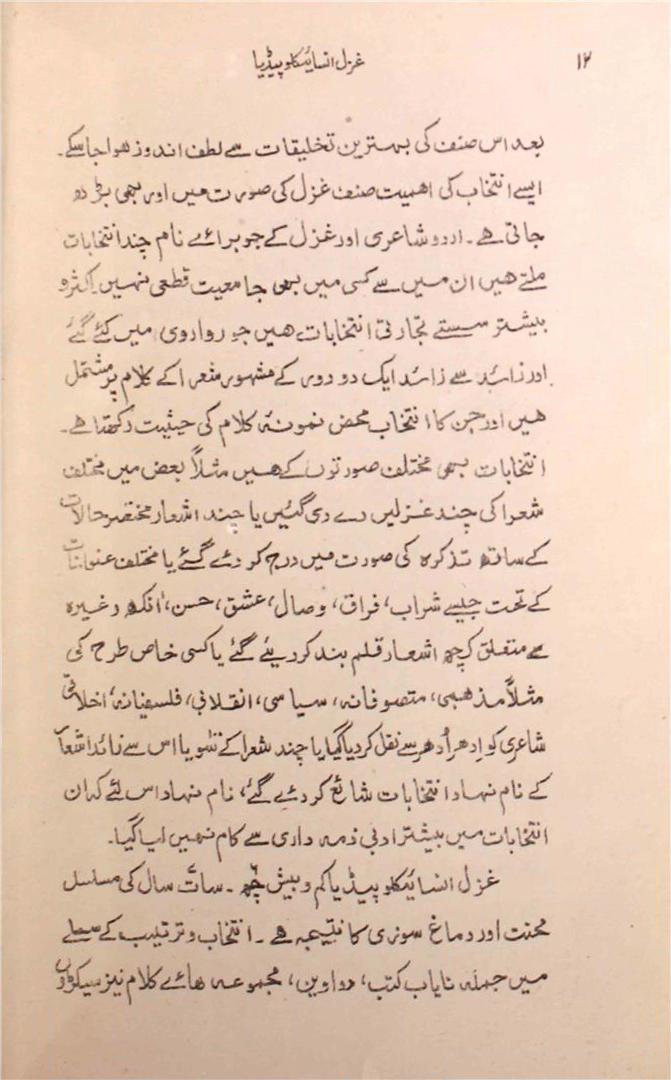 ۱۲
غزل انسائیکلوپیڈیا
بعد اس صنف کی بہترین تخلیقات سے لطف اندوز ہوا جا سکے۔
ایسے انتخاب کی اہمیت صنف غزل کی صورت میں اور بھی بڑھ
جاتی ہے۔ اردو شاعری اور غزل کے جو برائے نام چند انتخابات
ملتے ہیں ان میں سے کسی میں بھی جامعیت قطعی نہیں۔ اکثر و
بیشتر سستے تجارتی انتخابات ہیں جو رواروی میں کئے گئے
اور زائد سے زائد ایک دو دور کے مشہور شعرا کے کلام پر مشتمل
ہیں اور جن کا انتخاب محض نمونۂ کلام کی حیثیت رکھتا ہے۔
انتخابات بھی مختلف صورتوں کے ہیں مثلاً بعض میں مختلف
شعرا کی چند غزلیں دے دی گئیں یا چند اشعار مختصر حالات
کے ساتھ تذکرہ کی صورت میں درج کر دئے گئے یا مختلف عنوانات
کے تحت جیسے شراب، فراق، وصال، عشق، حسن، آنکھ وغیرہ
سے متعلق کچھ اشعار قلم بند کر دیئے گئے یا کسی خاص طرح کی
مثلاً مذہبی، متصوفانہ، سیاسی، انقلابی، فلسفیانہ، اخلاقی
شاعری کو ادھر اُدھر سے نقل کر دیا گیا یا چند شعرا کے نٹو یا اس سے زائد اشعار
کے نام نہاد انتخابات شائع کر دئے گئے، نام نہاد اس لئے کہ ان
انتخابات میں بیشتر ادبی ذمہ داری سے کام نہیں لیا گیا۔
غزل انسائیکلوپیڈیا کم و بیش چھ۔ سات سال کی مسلسل
محنت اور دماغ سوزی کا نتیجہ ہے۔ انتخاب و ترتیب کے سلسلے
میں جملہ نایاب کتب، دواوین، مجموعہ ہائے کلام نیز سیکڑوں